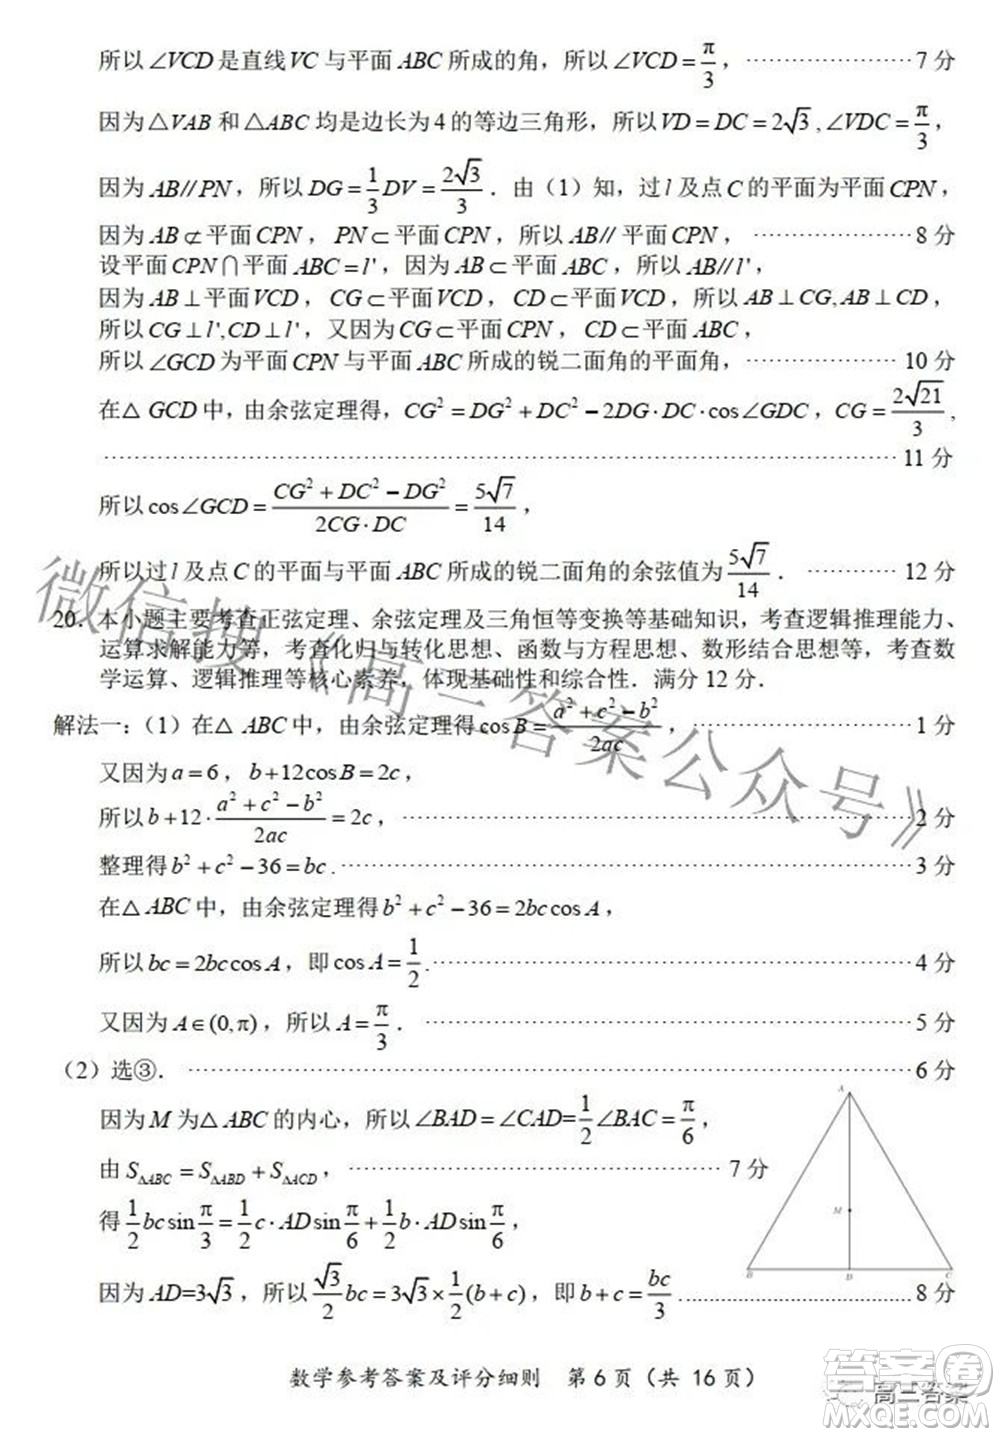 所以∠VCD是直线VC与平面ABC所成的角，所以∠VCD=π/3，……7分
因为△VAB和△ABC均是边长为4的等边三角形，所以VD=DC=2√3,∠VDC=π/3，
因为AB//PN，所以DG=1/3DV=2√3/3．由（1）知，过l及点C的平面为平面CPN，
因为AB⊄平面CPN，PN⊂平面CPN，所以AB//平面CPN，……8分
设平面CPN∩平面ABC=l'，因为AB⊂平面ABC，所以AB//l'，
因为AB⊥平面VCD，CG⊂平面VCD，CD⊂平面VCD，所以AB⊥CG,AB⊥CD，
所以CG⊥l',CD⊥l'，又因为CG⊂平面CPN，CD⊂平面ABC，
所以∠GCD为平面CPN与平面ABC所成的锐二面角的平面角，……10分
在△GCD中，由余弦定理得，CG²=DG²+DC²-2DG·DC·cos∠GDC，CG=2√21/3，
……11分
所以cos∠GCD=(CG²+DC²-DG²)/(2CG·DC)=5√7/14，
所以过l及点C的平面与平面ABC所成的锐二面角的余弦值为5√7/14．……12分
20．本小题主要考查正弦定理、余弦定理及三角恒等变换等基础知识，考查逻辑推理能力、
运算求解能力等，考查化归与转化思想、函数与方程思想、数形结合思想等，考查数
学运算、逻辑推理等核心素养，体现基础性和综合性．满分12分．
解法一：（1）在△ABC中，由余弦定理得cosB=(a²+c²-b²)/(2ac)，……1分
又因为a=6，b+12cosB=2c，
所以b+12·(a²+c²-b²)/(2ac)=2c，……2分
整理得b²+c²-36=bc．……3分
在△ABC中，由余弦定理得b²+c²-36=2bccosA，
所以bc=2bccosA，即cosA=1/2．……4分
又因为A∈(0,π)，所以A=π/3．……5分
（2）选③．……6分
因为M为△ABC的内心，所以∠BAD=∠CAD=1/2∠BAC=π/6，
由S△ABC=S△ABD+S△ACD，……7分
得1/2bcsinπ/3=1/2c·ADsinπ/6+1/2b·ADsinπ/6，
因为AD=3√3，所以√3/2bc=3√3×1/2(b+c)，即b+c=bc/3……8分
A
M
B
D
C
数学参考答案及评分细则　第6页（共16页）
微信搜《高三答案公众号》
高三答案
答案圈
MXQE.COM